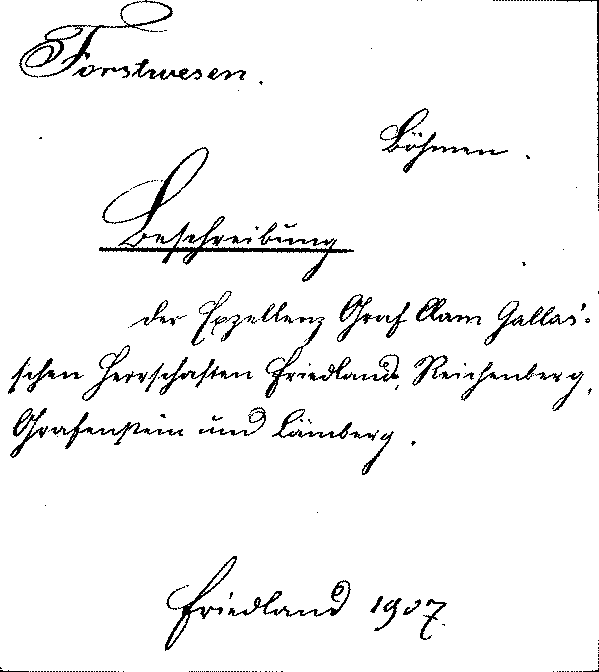 Forstwesen.
Böhmen.
Beschreibung
der Exzellenz Graf Clam Gallas'-
schen Herrschaften Friedland, Reichenberg,
Grafenstein und Lämberg.
Friedland 1907.